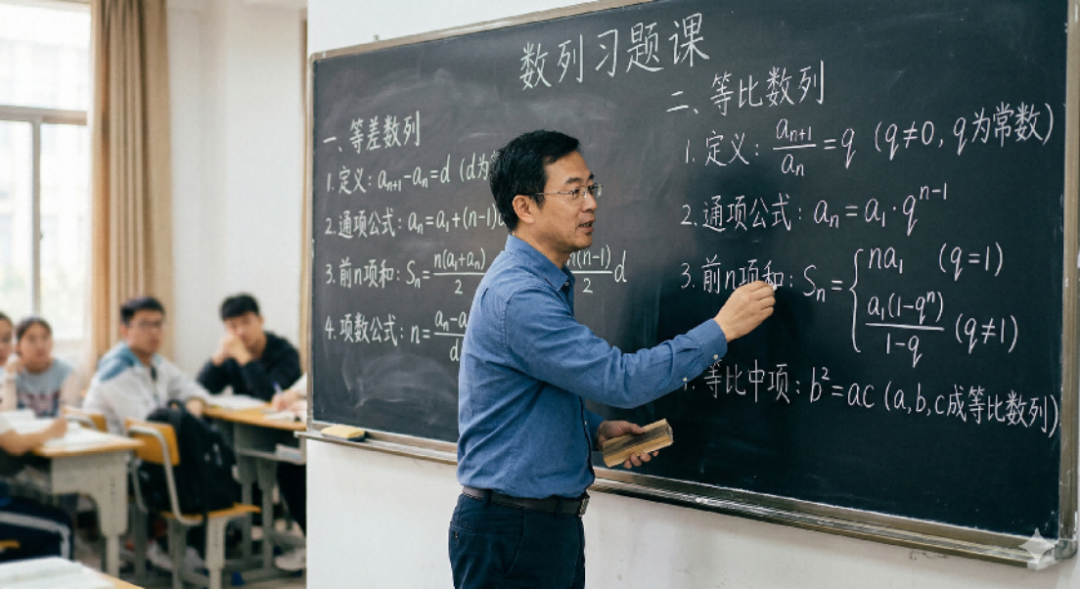 数列习题课
一、等差数列
1.定义: aₙ₊₁-aₙ=d (d为
2.通项公式: aₙ=a₁+(n-1)
3.前n项和: Sₙ=n(a₁+aₙ)/2 (n-1)/2 d
4.项数公式: n=
二、等比数列
1.定义: aₙ₊₁/aₙ=q (q≠0, q为常数)
2.通项公式: aₙ=a₁·qⁿ⁻¹
3.前n项和: Sₙ={na₁ (q=1)
a₁(1-qⁿ)/1-q (q≠1)
等比中项: b²=ac (a,b,c成等比数列)